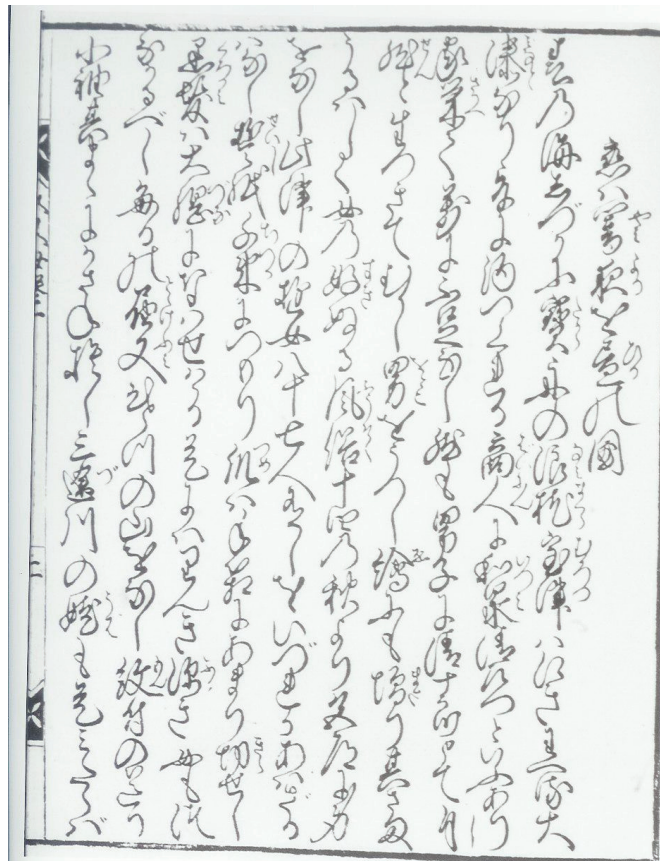 恋は闇夜を昼の國
春の海しづかに寶舟の浪枕室津はにぎはへる大
湊なり爰に酒つくれる商人に和泉清左衛門といふあり
家栄て万に不足なし然も男子に清十郎とて自
然と生つきてむかし男をうつし繪にも増り其さま
うるはしく女の好ぬる風俗十四の秋より色道に身
をなし此津の遊女八十七人有しをいづれかあはざる
はなし誓紙千束につもり爪は手箱にあまり切せし
黒髪は大綱になはせける是にはりんき深き女もつ
ながるべし毎日の届文ひとつの山をなし紋付の送り
小袖其まゝにかさね捨し三途川の姥も是みたらば
二